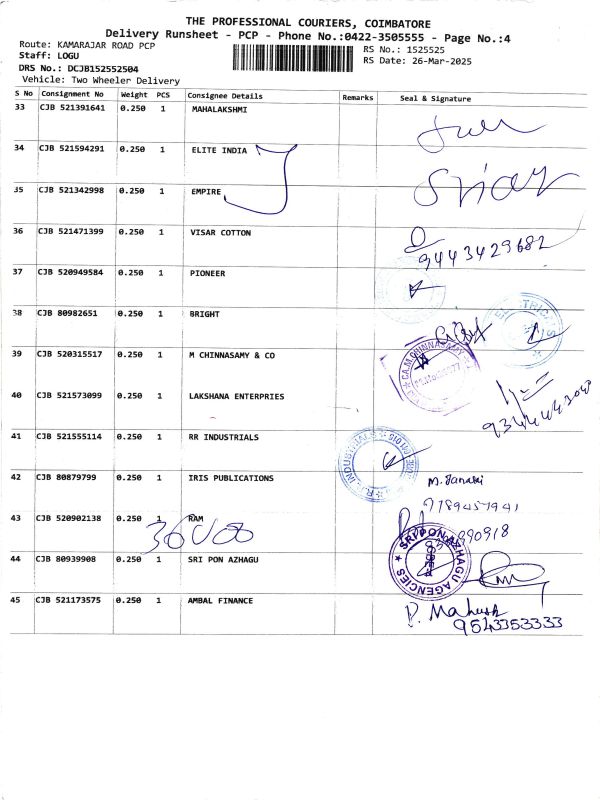 THE PROFESSIONAL COURIERS, COIMBATORE
Delivery Runsheet - PCP - Phone No.:0422-3505555 - Page No.:4
Route: KAMARAJAR ROAD PCP
RS No.: 1525525
Staff: LOGU
RS Date: 26-Mar-2025
DRS No.: DCJB152552504
Vehicle: Two Wheeler Delivery
S No Consignment No Weight PCS Consignee Details Remarks Seal & Signature
33 CJB 521391641 0.250 1 MAHALAKSHMI
34 CJB 521594291 0.250 1 ELITE INDIA
35 CJB 521342998 0.250 1 EMPIRE
36 CJB 521471399 0.250 1 VISAR COTTON
9443429682
37 CJB 520949584 0.250 1 PIONEER
38 CJB 80982651 0.250 1 BRIGHT
39 CJB 520315517 0.250 1 M CHINNASAMY & CO
40 CJB 521573099 0.250 1 LAKSHANA ENTERPRIES
41 CJB 521555114 0.250 1 RR INDUSTRIALS
42 CJB 80879799 0.250 1 IRIS PUBLICATIONS
M. Janaki
9789457941
43 CJB 520902138 0.250 1 RAM
44 CJB 80939908 0.250 1 SRI PON AZHAGU
SRI PON AZHAGU AGENCIES
45 CJB 521173575 0.250 1 AMBAL FINANCE
P. Mahesh
9543353333